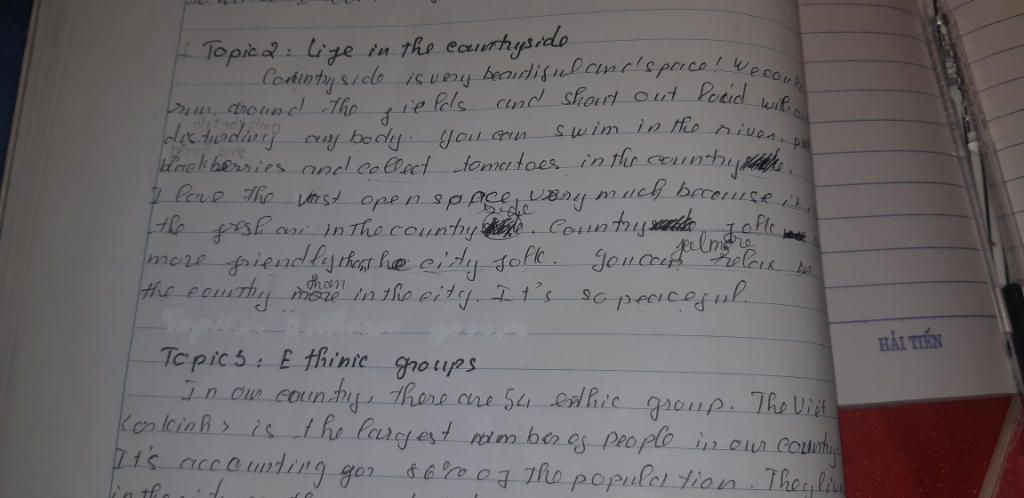 Topic 2: Life in the countryside
Countryside is very beautiful and space! We could
run around the fields and shout out loud without
disturbing anybody. You can swim in the river,
blackberries and collect tomatoes in the country
I love the vast open space very much because it
the fresh air in the country side. Country folk
more friendly than the city folk. You can relax more in
the country than in the city. It's so peaceful.
Topic 3: Ethinic groups
In our country, there are 54 enthic group. The Viet
(or kinh) is the largest number of people in our country
It's accounting for 86% of the population. They live
in the
HẢI TIẾN